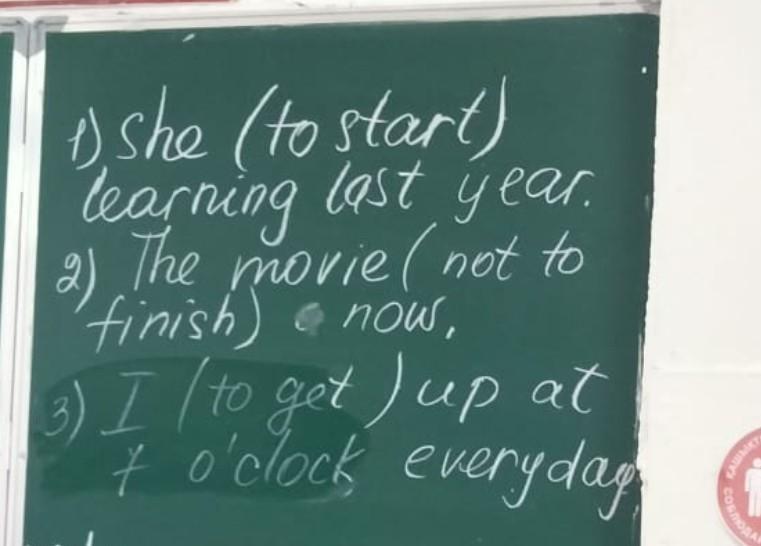 1) She (to start)
learning last year.
2) The movie ( not to
finish) now,
3) I (to get ) up at
7 o'clock everyday